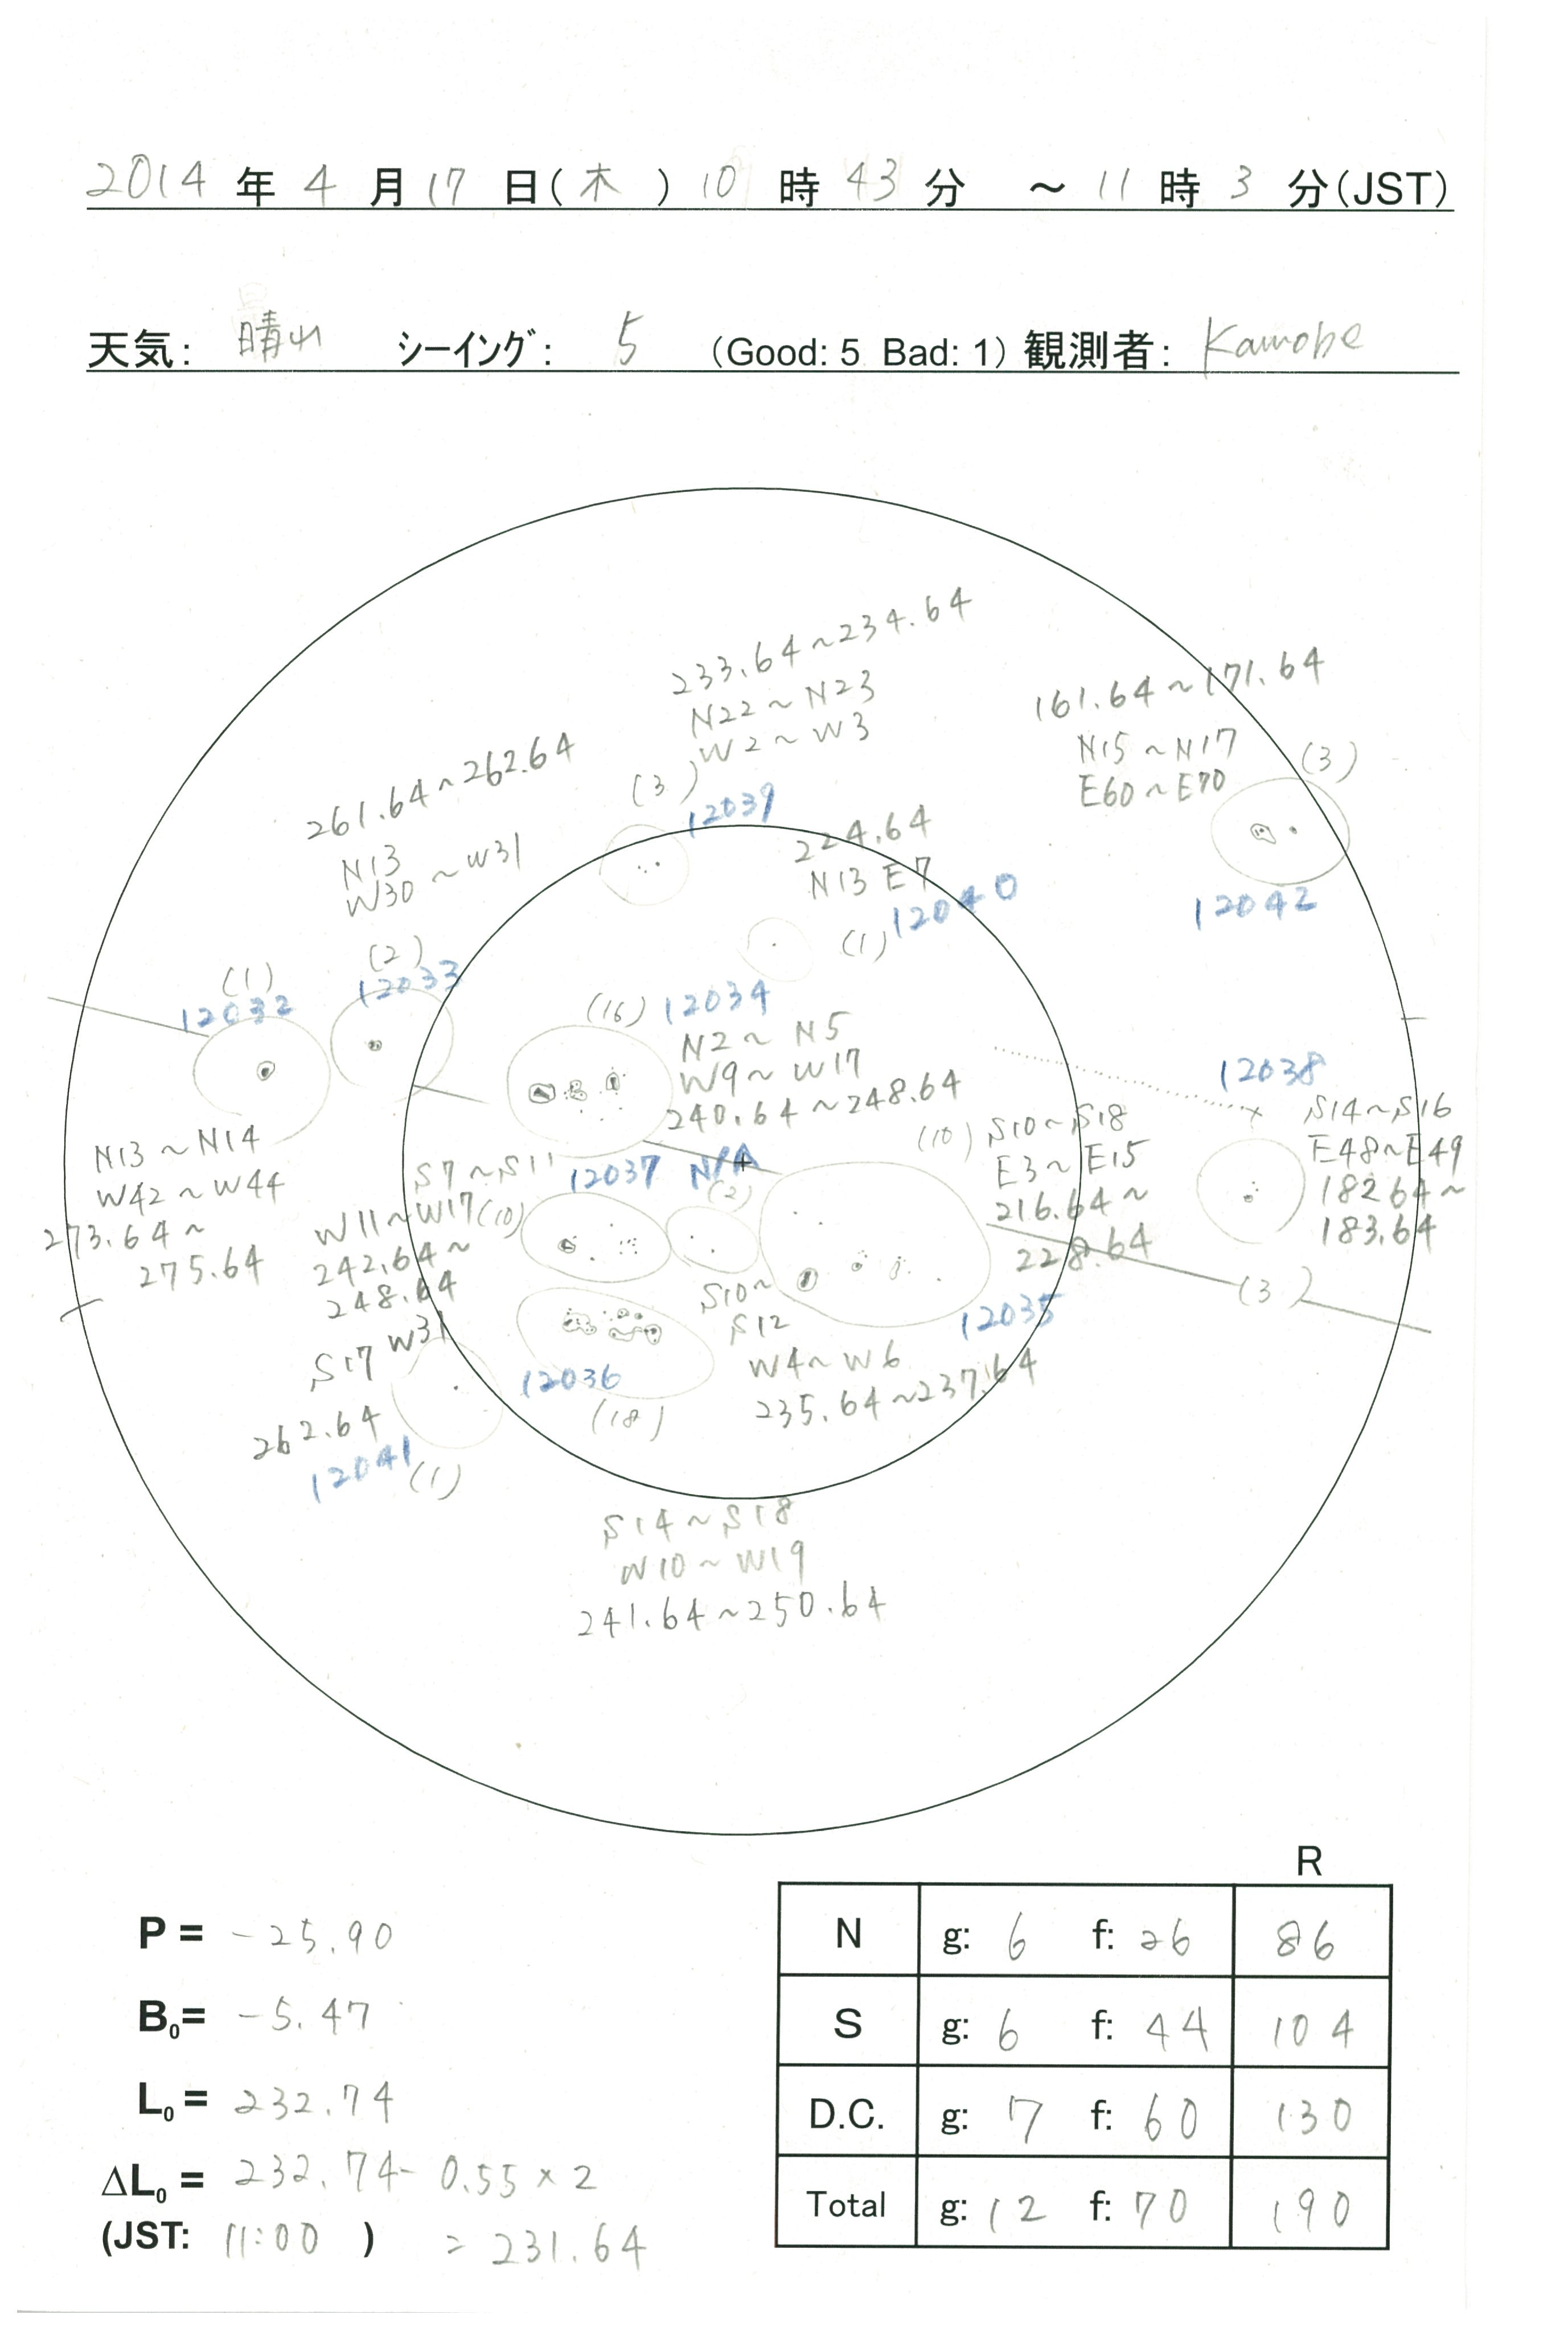 2014 年 4 月 17 日(木) 10 時 43 分 ~ 11 時 3 分(JST)
天気: 晴れ シーイング: 5 (Good: 5 Bad: 1) 観測者:
233.64~234.64
N22~N23
W2~W3
(3)
12039
161.64~171.64
N15~N17
E60~E70
(3)
12042
261.64~262.64
N13
W30~W31
(2)
12033
224.64
N13 E7
12040
(1)
(1)
12032
N13~N14
W42~W44
273.64~
275.64
(16) 12034
N2~N5
W9~W17
240.64~248.64
12038
S14~S16
E48~E49
182.64~
183.64
(3)
(10) S10~S18
E3~E15
216.64~
228.64
12035
S7~S11
12037
W11~W17(10)
242.64~
248.64
N/A
(2)
S10~
S12
W4~W6
235.64~237.64
S17 W31
262.64
12041
(1)
12036
(18)
S14~S18
W10~W19
241.64~250.64
P= -25.90
B0= -5.47
L0= 232.74
ΔL0= 232.74-0.55×2
(JST: 11:00 ) = 231.64
R
N g: 6 f: 26 86
S g: 6 f: 44 104
D.C. g: 7 f: 60 130
Total g: 12 f: 70 190